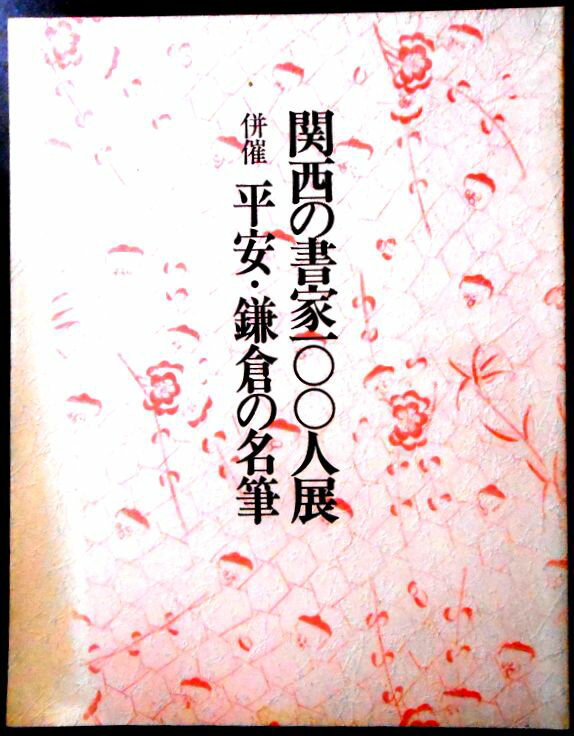 関西の書家一〇〇人展
併催 平安・鎌倉の名筆